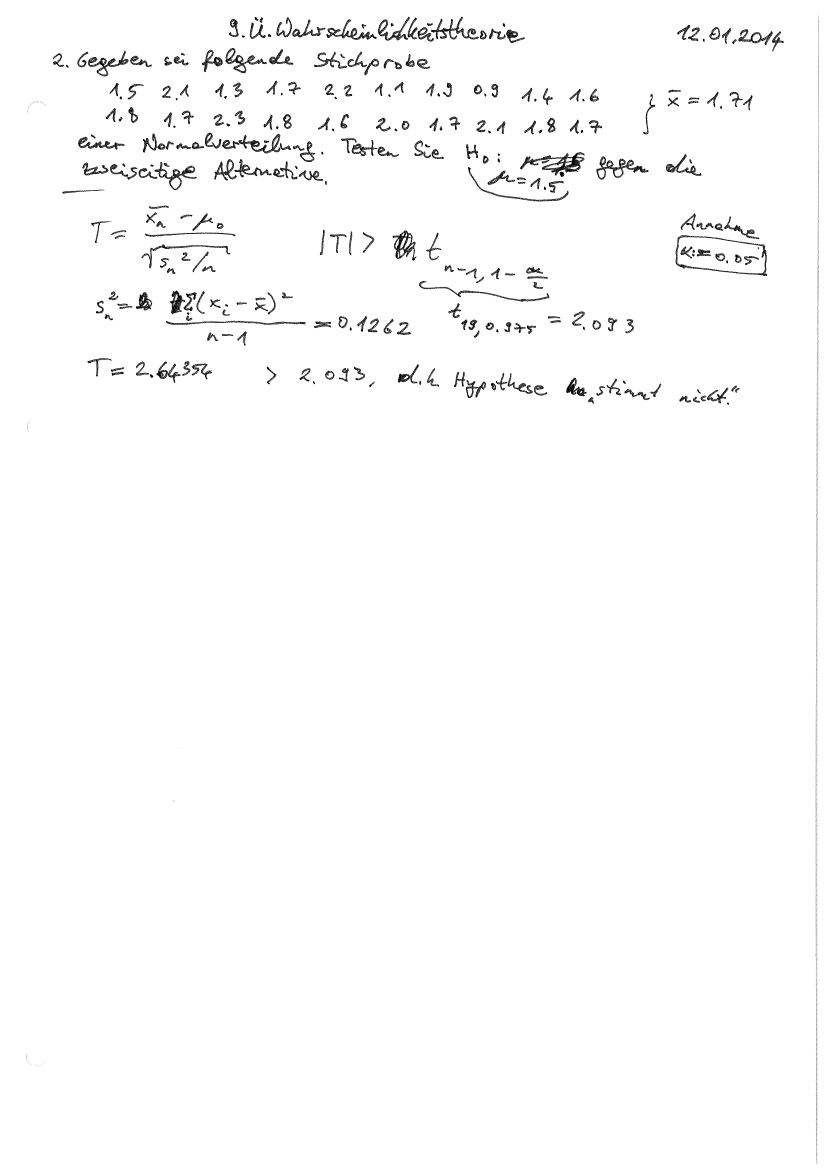 9. Ü. Wahrscheinlichkeitstheorie 12.01.2014
2. Gegeben sei folgende Stichprobe
1.5 2.1 1.3 1.7 2.2 1.1 1.9 0.9 1.4 1.6
1.8 1.7 2.3 1.8 1.6 2.0 1.7 2.1 1.8 1.7 } x̄ = 1.71
einer Normalverteilung. Testen Sie H₀: μ = 1.5 gegen die
zweiseitige Alternative.
Annahme
α := 0.05
T = (x̄ₙ - μ₀) / √(sₙ²/n) |T| > t_{n-1, 1-α/2}
t_{19, 0.975} = 2.093
sₙ² = Σᵢ(xᵢ - x̄)² / (n-1) = 0.1262
T = 2.64354 > 2.093, d.h. Hypothese „stimmt nicht."